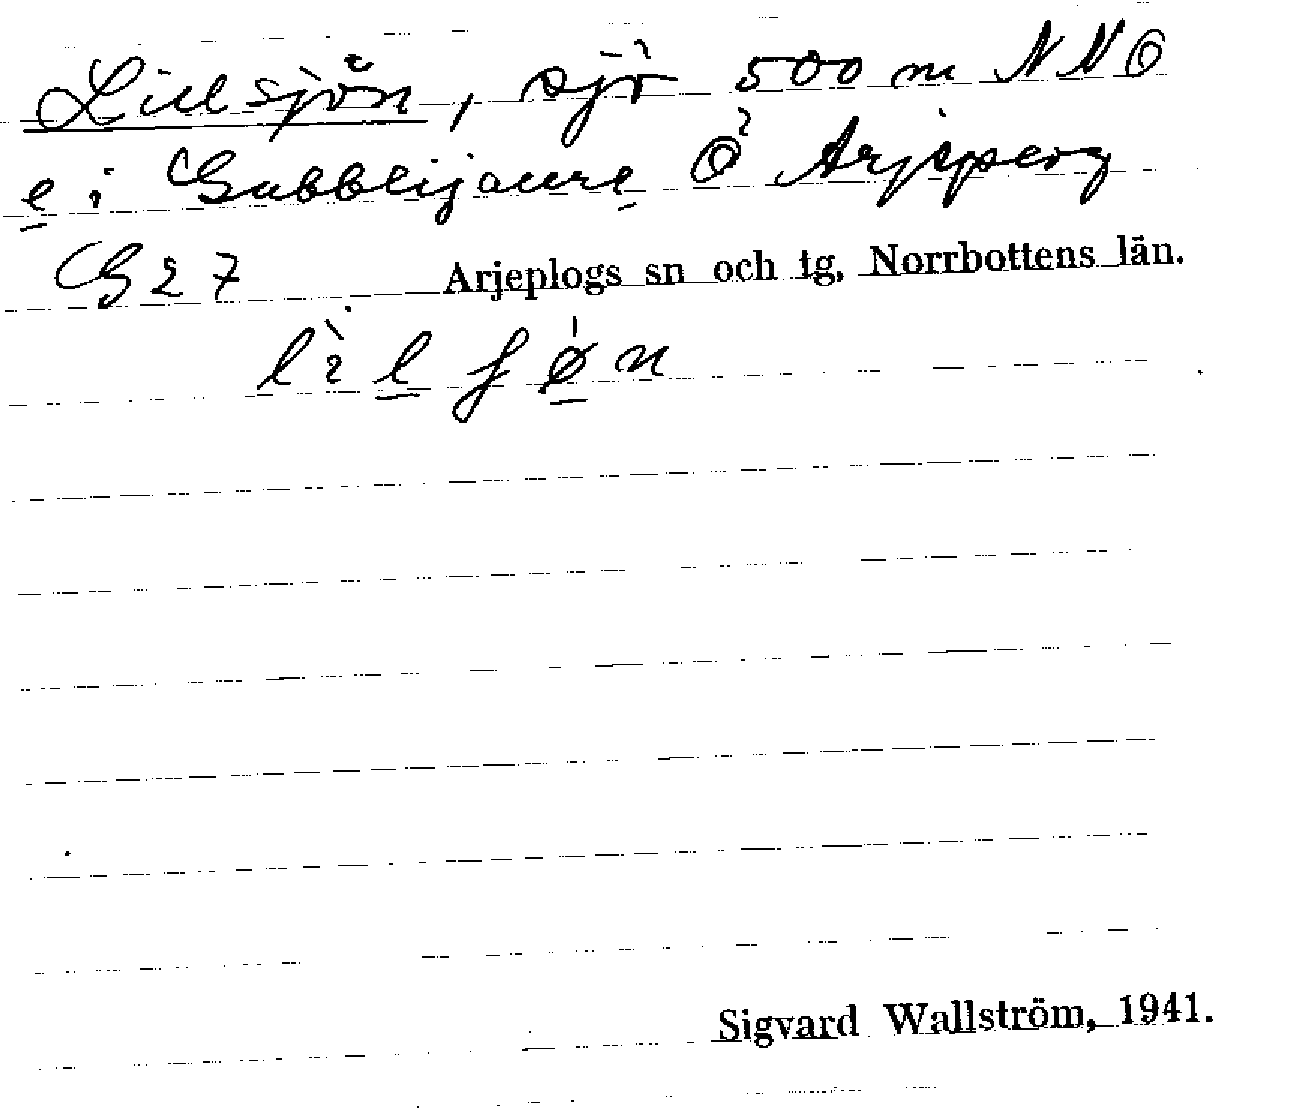 Lillsjön, sjö 500 m NNO
e i Gubblijaure Ö Arjeperg
G 27 Arjeplogs sn och tg, Norrbottens län.
Sigvard Wallström, 1941.